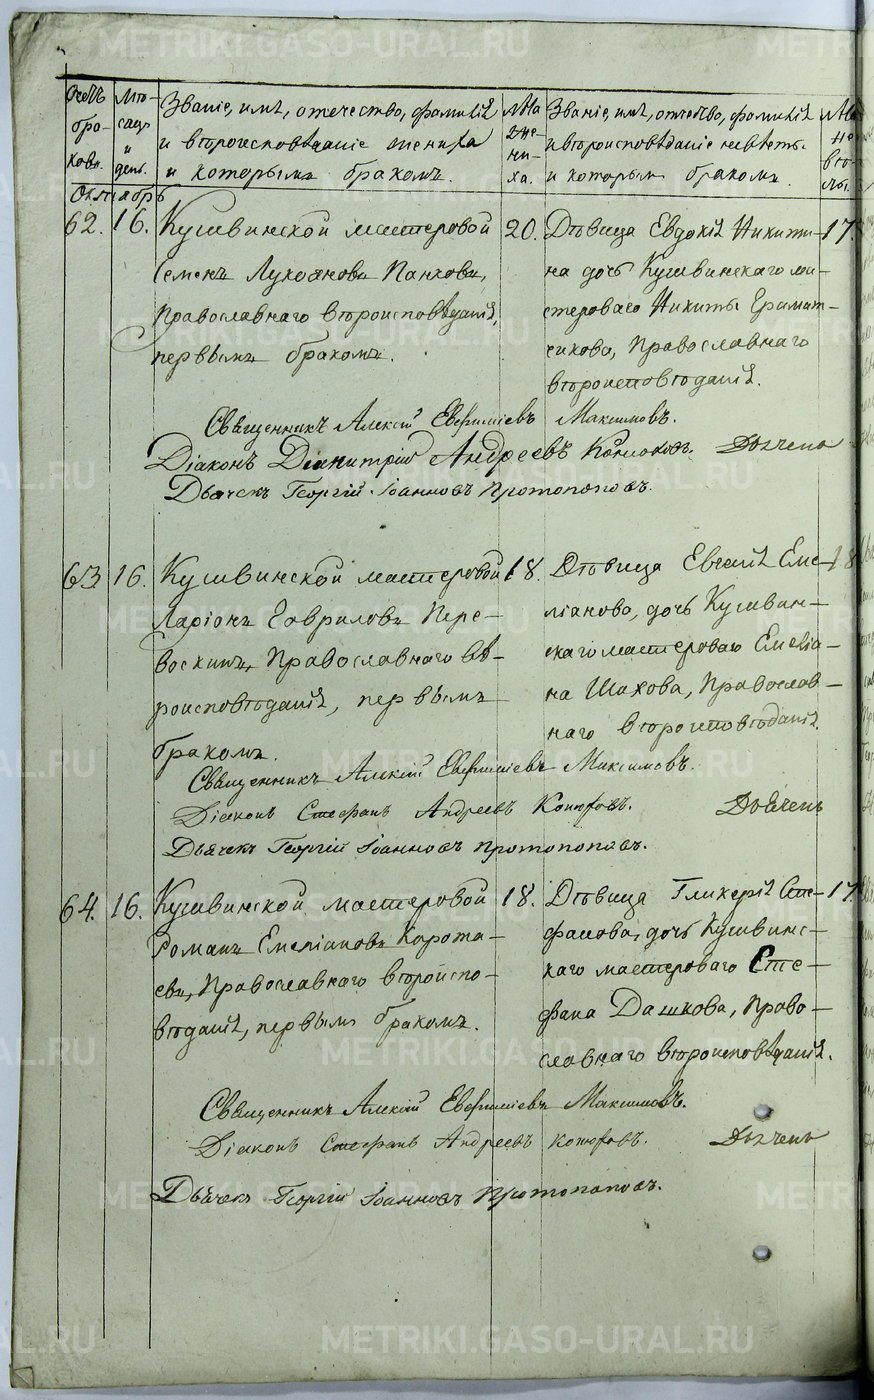 Счетъ бра- ковъ.
Мѣ- сяцъ и день.
Званіе, имѧ, отечество, фамиліѧ и вѣроисповѣданіе жениха и которымъ бракомъ.
Лѣта жениха.
Званіе, имѧ, отчество, фамиліѧ и вѣроисповѣданіе невѣсты и которымъ бракомъ.
Октябрь
62. 16. Кушвинской мастеровой
Семенъ Лукоянова Панховъ,
православнаго вѣроисповѣданіѧ,
первымъ бракомъ.
20.
Дѣвица Евдокіѧ Никити-
на дочь Кушвинскаго ма-
стероваго Никиты
православнаго
вѣроисповѣданіѧ.
17.
Священникъ Алексій Евфиміевъ Максимовъ.
Діаконъ Димитрій Андреевъ Конюховъ.
Дьячекъ Георгій Іоанновъ Протопоповъ.
63 16. Кушвинской мастеровой
Ларіонъ Гаврилова Пере-
воскинъ, православнаго вѣ-
роисповѣданіѧ, первымъ
бракомъ.
18.
Дѣвица Евгеніѧ Еме-
ліанова, дочь Кушвин-
скаго мастероваго Емеліа-
на Шахова, православ-
наго вѣроисповѣданіѧ.
18
Священникъ Алексій Евфиміевъ Максимовъ.
Діаконъ Стефанъ Андреевъ
Дьячекъ Георгій Іоанновъ Протопоповъ.
64. 16. Кушвинской мастеровой
Романъ Емеліановъ Корота-
евъ, православнаго вѣроиспо-
вѣданіѧ, первымъ бракомъ.
18.
Дѣвица Гликеріѧ Сте-
фанова, дочь Кушвинс-
каго мастероваго Сте-
фана Дашкова, право-
славнаго вѣроисповѣданіѧ.
17.
Священникъ Алексій Евфиміевъ Максимовъ.
Діаконъ Стефанъ Андреевъ
Дьячекъ Георгій Іоанновъ Протопоповъ.
METRIKI.GASO-URAL.RU